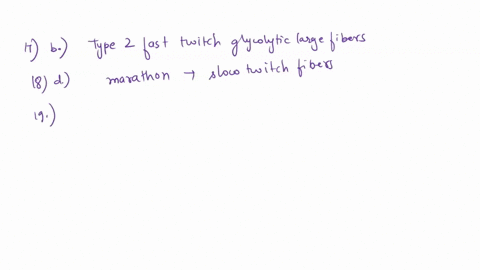 17) b.) Type 2 fast twitch glycolytic large fibers
18) d) marathon → slow twitch fibers
19.)